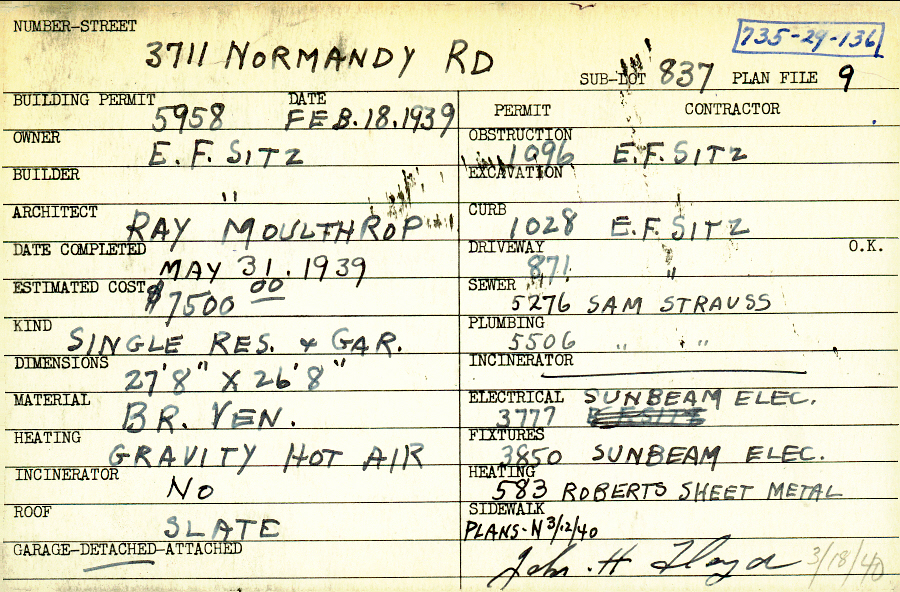 NUMBER-STREET
3711 NORMANDY RD
735-29-136
SUB-LOT 837 PLAN FILE 9
BUILDING PERMIT 5958 DATE FEB. 18. 1939
OWNER E. F. SITZ
BUILDER "
ARCHITECT RAY MOULTHROP
DATE COMPLETED MAY 31. 1939
ESTIMATED COST $7500 00
KIND SINGLE RES. & GAR.
DIMENSIONS 27'8" X 26'8"
MATERIAL BR. VEN.
HEATING GRAVITY HOT AIR
INCINERATOR NO
ROOF SLATE
GARAGE-DETACHED-ATTACHED
PERMIT CONTRACTOR
OBSTRUCTION 1096 E.F. SITZ
EXCAVATION
CURB 1028 E.F. SITZ
DRIVEWAY 871 " O.K.
SEWER 5276 SAM STRAUSS
PLUMBING 5506 " "
INCINERATOR
ELECTRICAL 3777 SUNBEAM ELEC.
E.F. SITZ
FIXTURES 3850 SUNBEAM ELEC.
HEATING 583 ROBERTS SHEET METAL
SIDEWALK
PLANS-N 3/12/40
John H Floyd 3/18/40